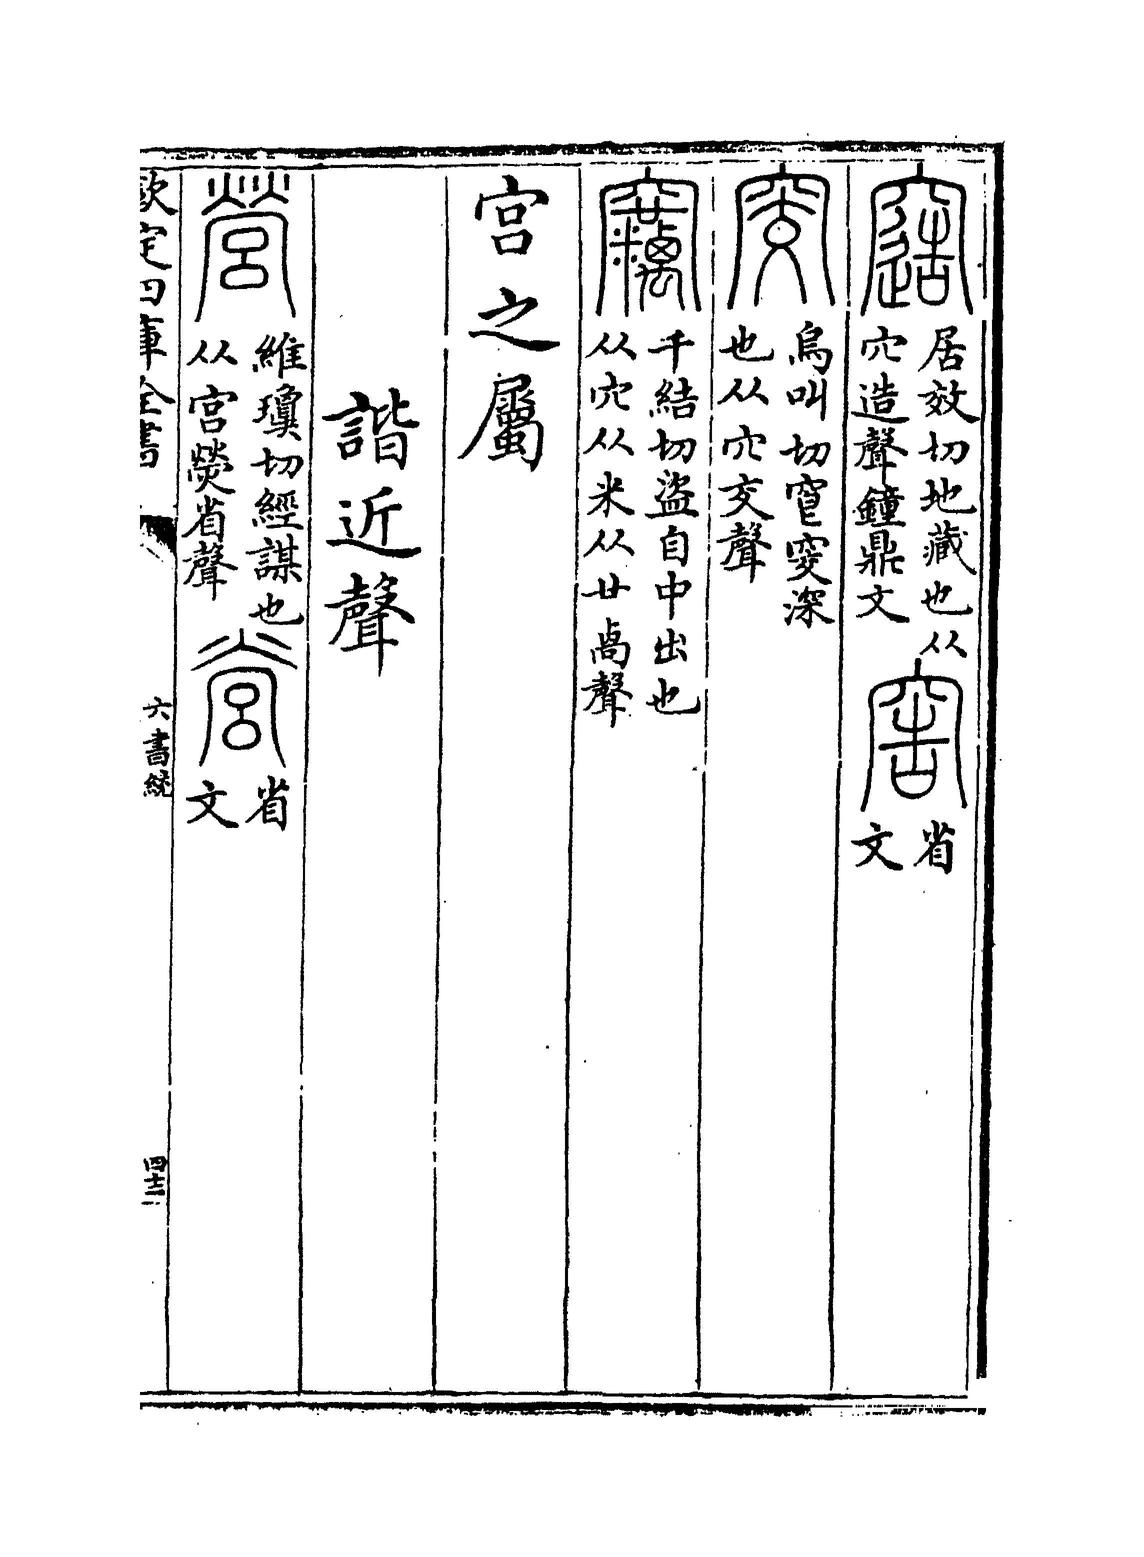 居效切地藏也从
穴造聲鐘鼎文
窖
省
文
窔
烏叫切窔深
也从穴交聲
竊
千結切盜自中出也
从穴从米从廿卨聲
宮之屬
諧近聲
營
維瓊切經謀也
从宮熒省聲
省
文
欽定四庫全書
六書統
四十二